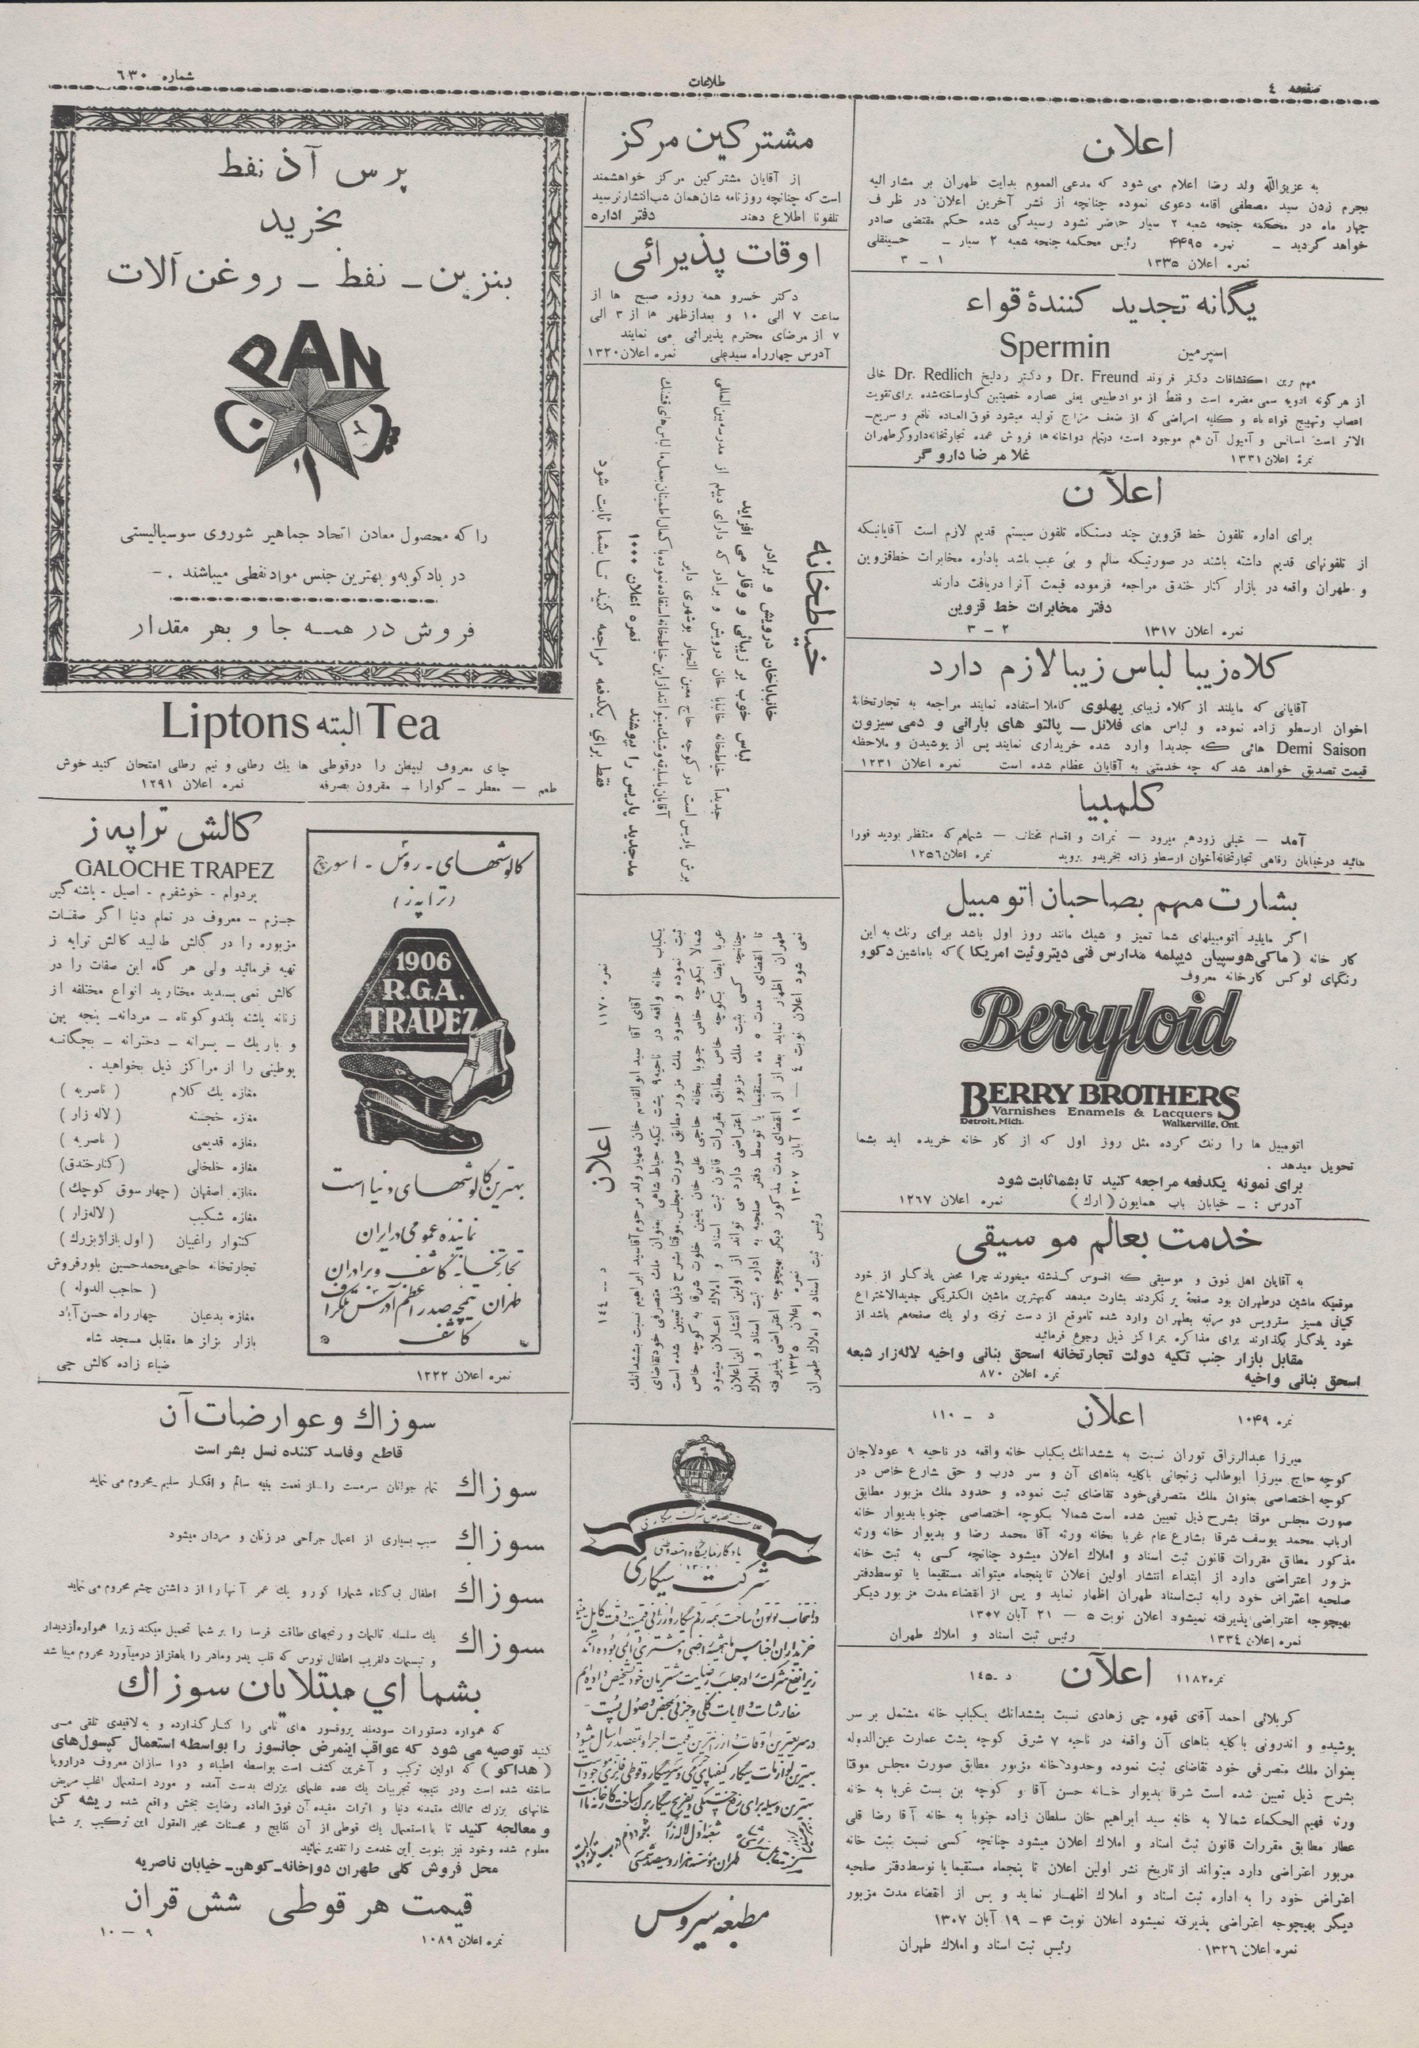 صفحه ٤
طلاعات
شماره ٦٣٠
اعلان
به عزیزالله ولد رضا اعلام می شود که مدعی العموم بدایت طهران بر مشارالیه
بجرم زدن سید مصطفی اقامه دعوی نموده چنانچه از نشر آخرین اعلان در ظرف
چهار ماه در محکمه جنحه شعبه ۲ سیار حاضر نشود رسیدگی شده حکم مقتضی صادر
خواهد گردید – نمره ۴۴۹۵ رئیس محکمه جنحه شعبه ۲ سیار – حسینقلی
نمره اعلان ۱۳۳۵ ۱ – ۳
یگانه تجدید کنندهٔ قواء
اسپرمین Spermin
مهم رین اکتشافات دکتر فروند Dr. Freund و دکتر ردلیخ Dr. Redlich خالی
از هرگونه ادویه سمی مضره است و فقط از مواد طبیعی یعنی عصاره خصیتین گاو ساخته شده برای تقویت
اعصاب وتهییج قواء باه و کلیه امراضی که از ضعف مزاج تولید میشود فوق العاده نافع و سریع–
الاتر است اسانس و آمپول آن هم موجود است، درتمام دواخانه ها فروش عمده تجارتخانه داروگر طهران
نمرهٔ اعلان ۱۳۳۱ غلامرضا داروگر
اعلآن
برای اداره تلفون خط قزوین چند دستگاه تلفون سیستم قدیم لازم است آقایانیکه
از تلفونهای قدیم داشته باشند در صورتیکه سالم و بی عیب باشد باداره مخابرات خط قزوین
و طهران واقعه در بازار کنار خندق مراجعه فرموده قیمت آنرا دریافت دارند
دفتر مخابرات خط قزوین
نمره اعلان ۱۳۱۷ ۲ – ۳
کلاه زیبا لباس زیبا لازم دارد
آقایانی که مایلند از کلاه زیبای پهلوی کاملا استفاده نمایند مراجعه به تجارتخانهٔ
اخوان ارسطو زاده نموده و لباس های فلانل – پالتو های بارانی و دمی سیزون
Demi Saison هائی که جدیداً وارد شده خریداری نمایند پس از پوشیدن و ملاحظه
قیمت تصدیق خواهد شد که چه خدمتی به آقایان عظام شده است نمره اعلان ۱۲۳۱
کلمبیا
آمد – خیلی زودهم میرود – نمرات و اقسام مختلف – شماهم که منتظر بودید فورا
بیائید درخیابان رفاهی تجارتخانه اخوان ارسطو زاده بخریدو بروید نمره اعلان ۱۲۵۶
بشارت مهم بصاحبان اتومبیل
اگر مایلید اتومبیلهای شما تمیز و شیك مانند روز اول باشد برای رنك به این
کار خانه ( ماکی هوسپیان دیپلمه مدارس فنی دیترویت امریکا ) که باماشین دکوو
رنگهای لوکس کارخانه معروف
Berryloid
BERRY BROTHERS
Varnishes Enamels & Lacquers
Detroit, Mich. Walkerville, Ont.
اتومبیل ها را رنك کرده مثل روز اول که از کار خانه خریده اید بشما
تحویل میدهد .
برای نمونه یکدفعه مراجعه کنید تا بشما ثابت شود
آدرس : – خیابان باب همایون (ارك) نمره اعلان ۱۲۶۷
خدمت بعالم موسیقی
به آقایان اهل ذوق و موسیقی که افسوس گذشته میخورند چرا محض یادگار از خود
موقعیکه ماشین درطهران بود صفحهٔ پر نکردند بشارت میدهد که بهترین ماشین الکتریکی جدیدالاختراع
کمپانی هسیز سترویس دو مرتبه بطهران وارد شده تاموقع از دست نرفته ولو یك صفحه هم باشد از
خود یادگار بگذارند برای مذاکره بمراکز ذیل رجوع فرمائید
مقابل بازار جنب تکیه دولت تجارتخانه اسحق بنانی واخیه لاله زار شعبه
اسحق بنانی واخیه نمره اعلان ۸۷۰
نمره ۱۰۴۹ اعلان د – ۱۱۰
میرزا عبدالرزاق توران نسبت به ششدانك یکباب خانه واقعه در ناحیه ۹ عودلاجان
کوچه حاج میرزا ابوطالب زنجانی باکلیه بناهای آن و سر درب و حق شارع خاص در
کوچه اختصاصی بعنوان ملك متصرفی خود تقاضای ثبت نموده و حدود ملك مزبور مطابق
صورت مجلس موقتا بشرح ذیل تعیین شده است شمالا بکوچه اختصاصی جنوبا بدیوار خانه
ارباب محمد یوسف شرقا بشارع عام غربا بخانه ورثه آقا محمد رضا و بدیوار خانه ورثه
مذکور مطابق مقررات قانون ثبت اسناد و املاك اعلان میشود چنانچه کسی به ثبت خانه
مزبور اعتراضی دارد از ابتداء انتشار اولین اعلان تا پنجماه میتواند مستقیما یا توسط دفتر
صلحیه اعتراض خود رابه ثبت اسناد طهران اظهار نماید و پس از انقضاء مدت مزبور دیگر
بهیچوجه اعتراضی پذیرفته نمیشود اعلان نوبت ۵ – ۲۱ آبان ۱۳۰۷
نمره اعلان ۱۳۳٤ رئیس ثبت اسناد و املاك طهران
نمره ۱۱۸۲ اعلآن د – ۱٤۵
کربلائی احمد آقای قهوه چی زهادی نسبت بششدانك یکباب خانه مشتمل بر سر
پوشیده و اندرونی باکلیه بناهای آن واقعه در ناحیه ۷ شرق کوچه پشت عمارت عین الدوله
بعنوان ملك متصرفی خود تقاضای ثبت نموده وحدود خانه مزبور مطابق صورت مجلس موقتا
بشرح ذیل تعیین شده است شرقا بدیوار خانه حسن آقا و کوچه بن بست غربا به خانه
ورثه فهیم الحکماء شمالا به خانه سید ابراهیم خان سلطان زاده جنوبا به خانه آقا رضا قلی
عطار مطابق مقررات قانون ثبت اسناد و املاك اعلان میشود چنانچه کسی نسبت بثبت خانه
مزبور اعتراضی دارد میتواند از تاریخ نشر اولین اعلان تا پنجماه مستقیما یا توسط دفتر صلحیه
اعتراض خود را به اداره ثبت اسناد و املاك اظهار نماید و پس از انقضاء مدت مزبور
دیگر بهیچوجه اعتراضی پذیرفته نمیشود اعلان نوبت ۴ – ۱۹ آبان ۱۳۰۷
نمره اعلان ۱۳۲۶ رئیس ثبت اسناد و املاك طهران
مشترکین مرکز
از آقایان مشترکین مرکز خواهشمند
است که چنانچه روزنامه شان همان شب انتشار نرسید
تلفونا اطلاع دهند دفتر اداره
اوقات پذیرائی
دکتر خسرو همه روزه صبح ها از
ساعت ۷ الی ۱۰ و بعدازظهر ها از ۳ الی
۷ از مرضای محترم پذیرائی می نمایند
آدرس چهارراه سیدعلی نمره اعلان ۱۳۲۰
خیاطخانه
خانباباخان درویش و برادر
لباس خوب بر زیبائی و وقار می افزاید
جدیداً خیاطخانه خانبابا خان درویش و برادر که دارای دیپلم از مدرسه بین المللی
برش پاریس است در کوچه حاج معین التجار بوشهری دایر
آقایان باسلیقه وشیك میتوانند از این خیاطخانه استفاده نموده با کمال اطمینان بعمل
مدجدید پاریس را بپوشند نمره اعلان ۱۰۰۰
فقط برای یکدفعه مراجعه کنید تا بشما ثابت شود
نمره ۱۱۷۰ اعلان د – ۱٤٤
آقای آقا سید ابوالقاسم خان شهیار ولد مرحوم آقاسید ابراهیم نسبت بششدانك
یکباب خانه واقعه در ناحیه ۹ پشت تکیه حیاط شاهی بعنوان ملك متصرفی خود تقاضای
ثبت نموده و حدود ملك مزبور مطابق صورت مجلس موقتا بشرح ذیل تعیین شده است
شمالا بکوچه خاص جنوبا بخانه حاجی علی خان یمین خلوت شرقا به کوچه خاص
غربا ایضا بکوچه خاص مطابق مقررات قانون ثبت اسناد و املاك اعلان میشود
چنانچه کسی بثبت ملك مزبور اعتراضی دارد می تواند از اولین انتشار این اعلان
تا انقضای مدت ۵ ماه مستقیما یا توسط دفتر صلحیه به اداره ثبت اسناد و املاك
طهران اظهار نماید بعد از انقضای مدت مذکور دیگر بهیچوجه اعتراضی پذیرفته
نمی شود اعلان نوبت ٤ – ۱۹ آبان ۱۳۰۷ نمره اعلان ۱۳۲۵
رئیس ثبت اسناد و املاك طهران
علامت مخصوص شرکت سیگاری
یادگار نمایشگاه امتعه وطنی
شرکت سیگاری
در انتخاب توتون و ساخت همه رقم سیگار و ارزانی قیمت دقت کامل مینماید
خریداران اجناس ما همیشه راضی و مشتری دائمی بوده اند
زیرا نفع شرکت را در جلب رضایت مشتریان خود تشخیص داده ایم
سفارشات ولایات کلی و جزئی بمحض وصول پست
در سریعترین اوقات از نازلترین قیمت اجرا و بمقصد ارسال میشود
مطبعه سیروس
پرس آذ نفط
بخرید
بنزین – نفط – روغن آلات
PAN
را که محصول معادن اتحاد جماهیر شوروی سوسیالیستی
در بادکوبه و بهترین جنس مواد نفطی میباشند .–
فروش در همه جا و بهر مقدار
Liptons البته Tea
چای معروف لیپطن را درقوطی ها یك رطلی و نیم رطلی امتحان کنید خوش
طعم – معطر – گوارا – مقرون بصرفه نمره اعلان ۱۲۹۱
کالش تراپه ز
GALOCHE TRAPEZ
پردوام – خوشفرم – اصیل – پاشنه گیر
جزم – معروف در تمام دنیا اگر صفات
مزبوره را در گالش طالبید کالش تراپه ز
تهیه فرمائید ولی هر گاه این صفات را در
کالش نمی پسندید مختارید انواع مختلفه از
زنانه پاشنه بلند و کوتاه – مردانه– پنجه پهن
و باریك – پسرانه – دخترانه – بچگانه
پوطینی را از مراکز ذیل بخواهید .
مغازه یك کلام ( ناصریه )
مغازه خجسته ( لاله زار )
مغازه قدیمی ( ناصریه )
مغازه خلخالی (کنارخندق)
مغازه اصفهان (چهار سوق کوچك)
مغازه شکیب (لاله زار)
کنتوار راغبیان ( اول بازار بزرك )
تجارتخانه حاجی محمدحسین بلورفروش
( حاجب الدوله )
مغازه بدعیان چهار راه حسن آباد
بازار بزاز ها مقابل مسجد شاه
ضیاء زاده کالش چی
کالوشهای – روش – اسورچ
(تراپه ز)
1906
R.G.A.
TRAPEZ
بهترین کالوشهای دنیا است
نماینده عمومی در ایران
تجارتخانه کاشف و برادران
طهران تیمچه صدر اعظم آدرس تلگرافی
کاشف
نمره اعلان ۱۲۲۲
سوزاك و عوارضات آن
قاطع وفاسد کننده نسل بشر است
سوزاك تمام جوانان سرمست را از نعمت بنیه سالم و افکار سلیم محروم می نماید
سوزاك سبب بسیاری از اعمال جراحی در زنان و مردان میشود
سوزاك اطفال بی گناه شمارا کور و یك عمر آنها را از داشتن چشم محروم می نماید
سوزاك یك سلسله تالمات و رنجهای طاقت فرسا را بر شما تحمیل میکند زیرا همواره ازدیدار
و تبسمات دلفریب اطفال نورس که قلب پدر ومادر را باهتزاز درمیآورد محروم میباشد
بشما ای مبتلایان سوزاك
که همواره دستورات سودمند پروفسور های نامی را کنار گذارده و به لاقیدی تلقی می
کنید توصیه می شود که عواقب اینمرض جانسوز را بواسطه استعمال کپسول های
( هداکو ) که اولین ترکیب و آخرین کشف است بواسطه اطباء و دوا سازان معروف دراروپا
ساخته شده است ودر نتیجه تجربیات یك عده علمای بزرك بدست آمده و مورد استعمال اغلب مریض
خانهای بزرك ممالك متمدنه دنیا و اثرات مفیده آن فوق العاده رضایت بخش واقع شده ریشه کن
و معالجه کنید تا با استعمال یك قوطی از آن نتایج و محسنات محیر العقول این ترکیب بر شما
معلوم شده وخود نیز بنوبت این خدمت را تقدیر نمائید
محل فروش کلی طهران دواخانه–کوهن– خیابان ناصریه
قیمت هر قوطی شش قران
نمره اعلان ۱۰۸۹ ۹ – ۱۰